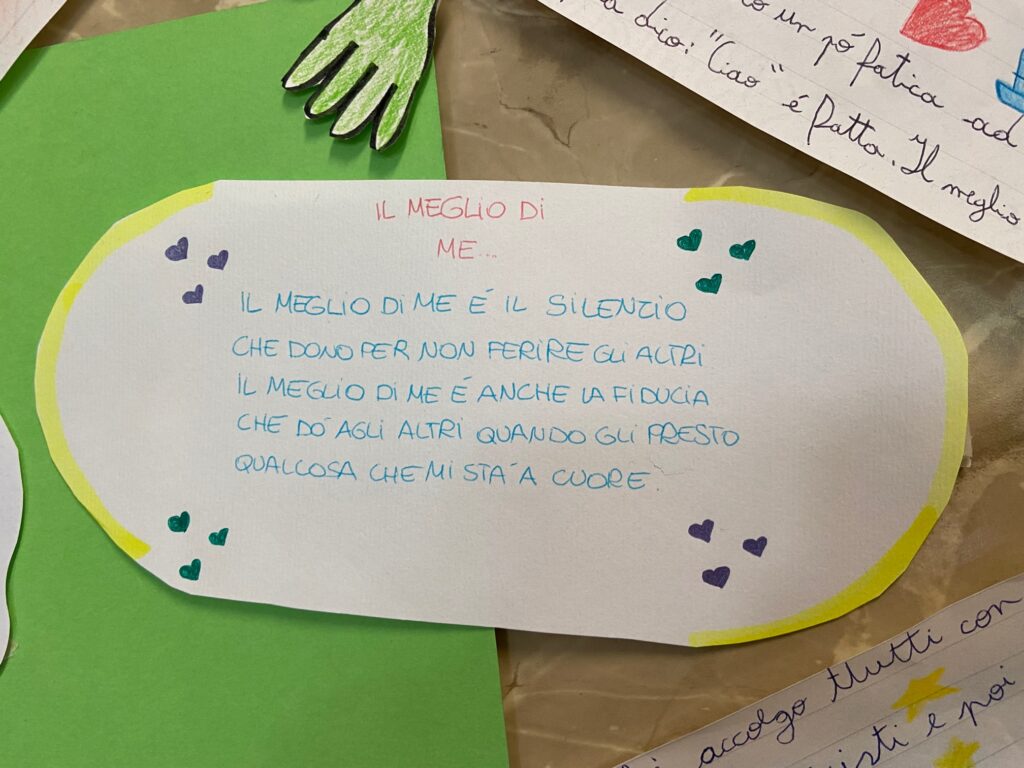 o un pó fatica ad
a dico: "Ciao" é fatta. Il meglio
IL MEGLIO DI
ME...
IL MEGLIO DI ME É IL SILENZIO
CHE DONO PER NON FERIRE GLI ALTRI
IL MEGLIO DI ME É ANCHE LA FIDUCIA
CHE DÓ AGLI ALTRI QUANDO GLI PRESTO
QUALCOSA CHE MI STÁ A CUORE.
accolgo tutti con
e poi